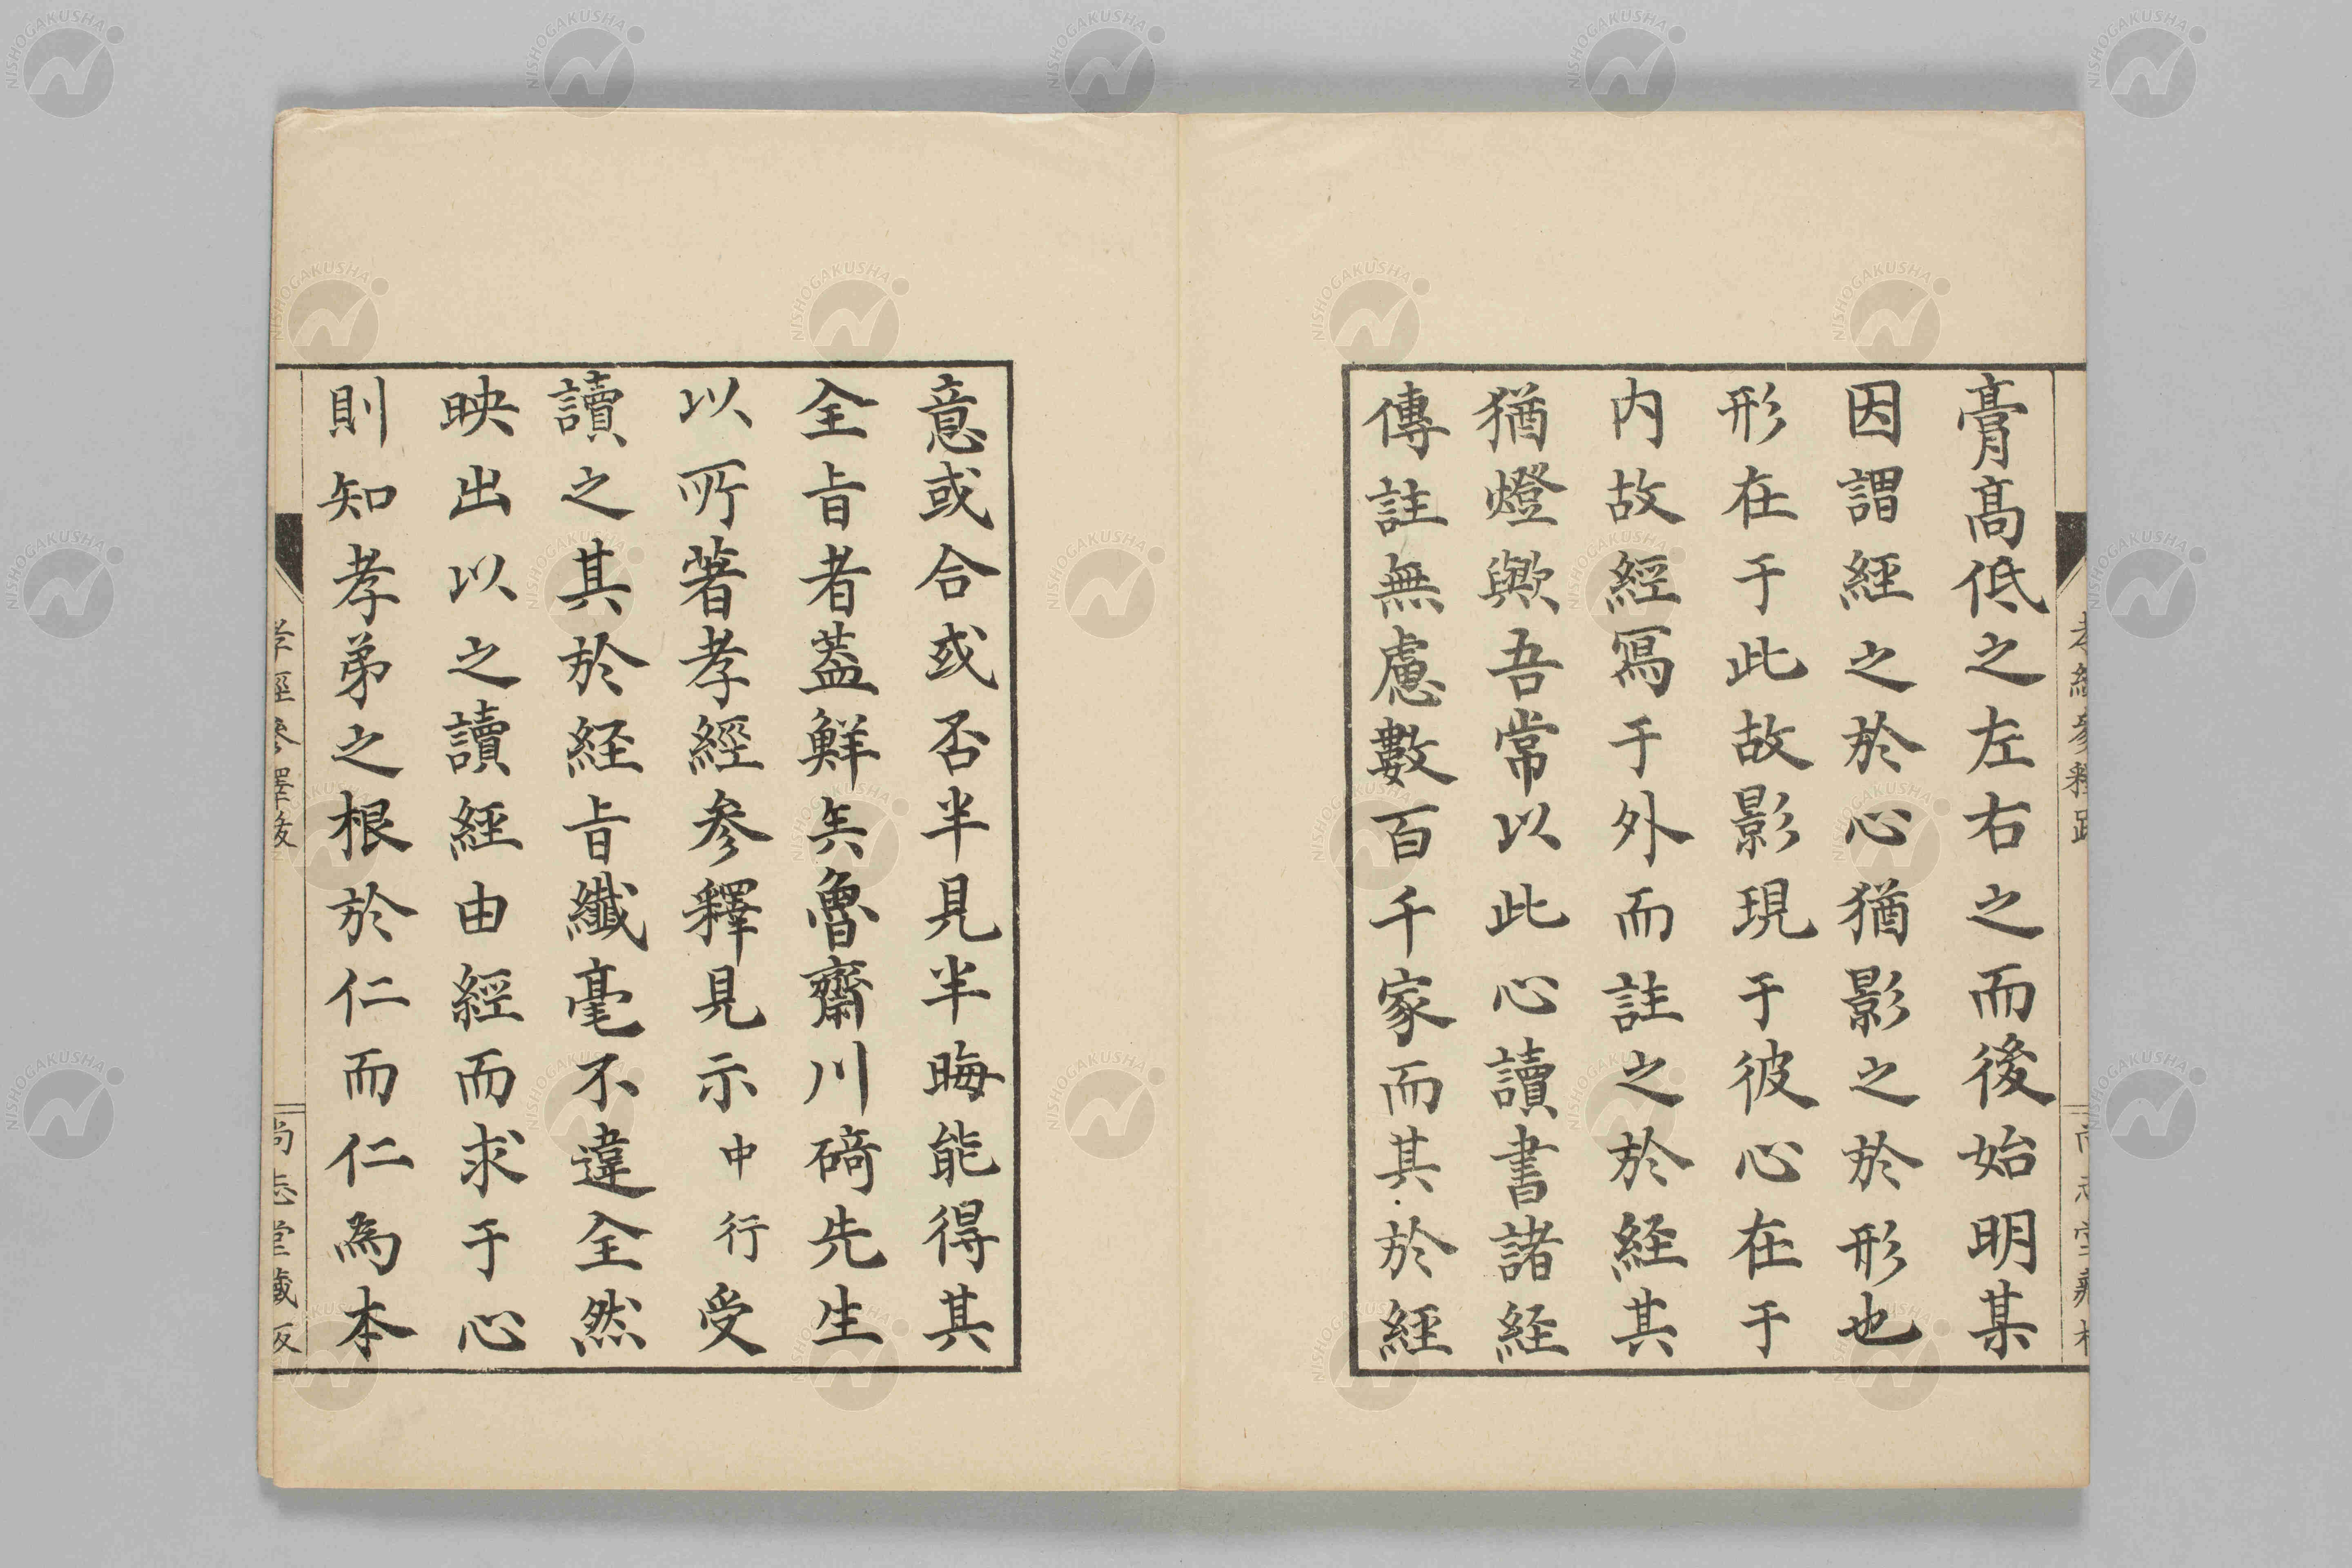 膏高低之左右之而後始明某
因謂経之於心猶影之於形也
形在于此故影現于彼心在于
内故經寫于外而註之於経其
猶燈歟吾常以此心讀書諸経
傳註無慮數百千家而其於經
意或合或否半見半晦能得其
全旨者蓋鮮矣魯齋川碕先生
以所著孝經参釋見示中行受
讀之其於経旨纖毫不違全然
映出以之讀經由經而求于心
則知孝弟之根於仁而仁為本
孝經參釋跋
尚志堂藏板
NISHOGAKUSHA